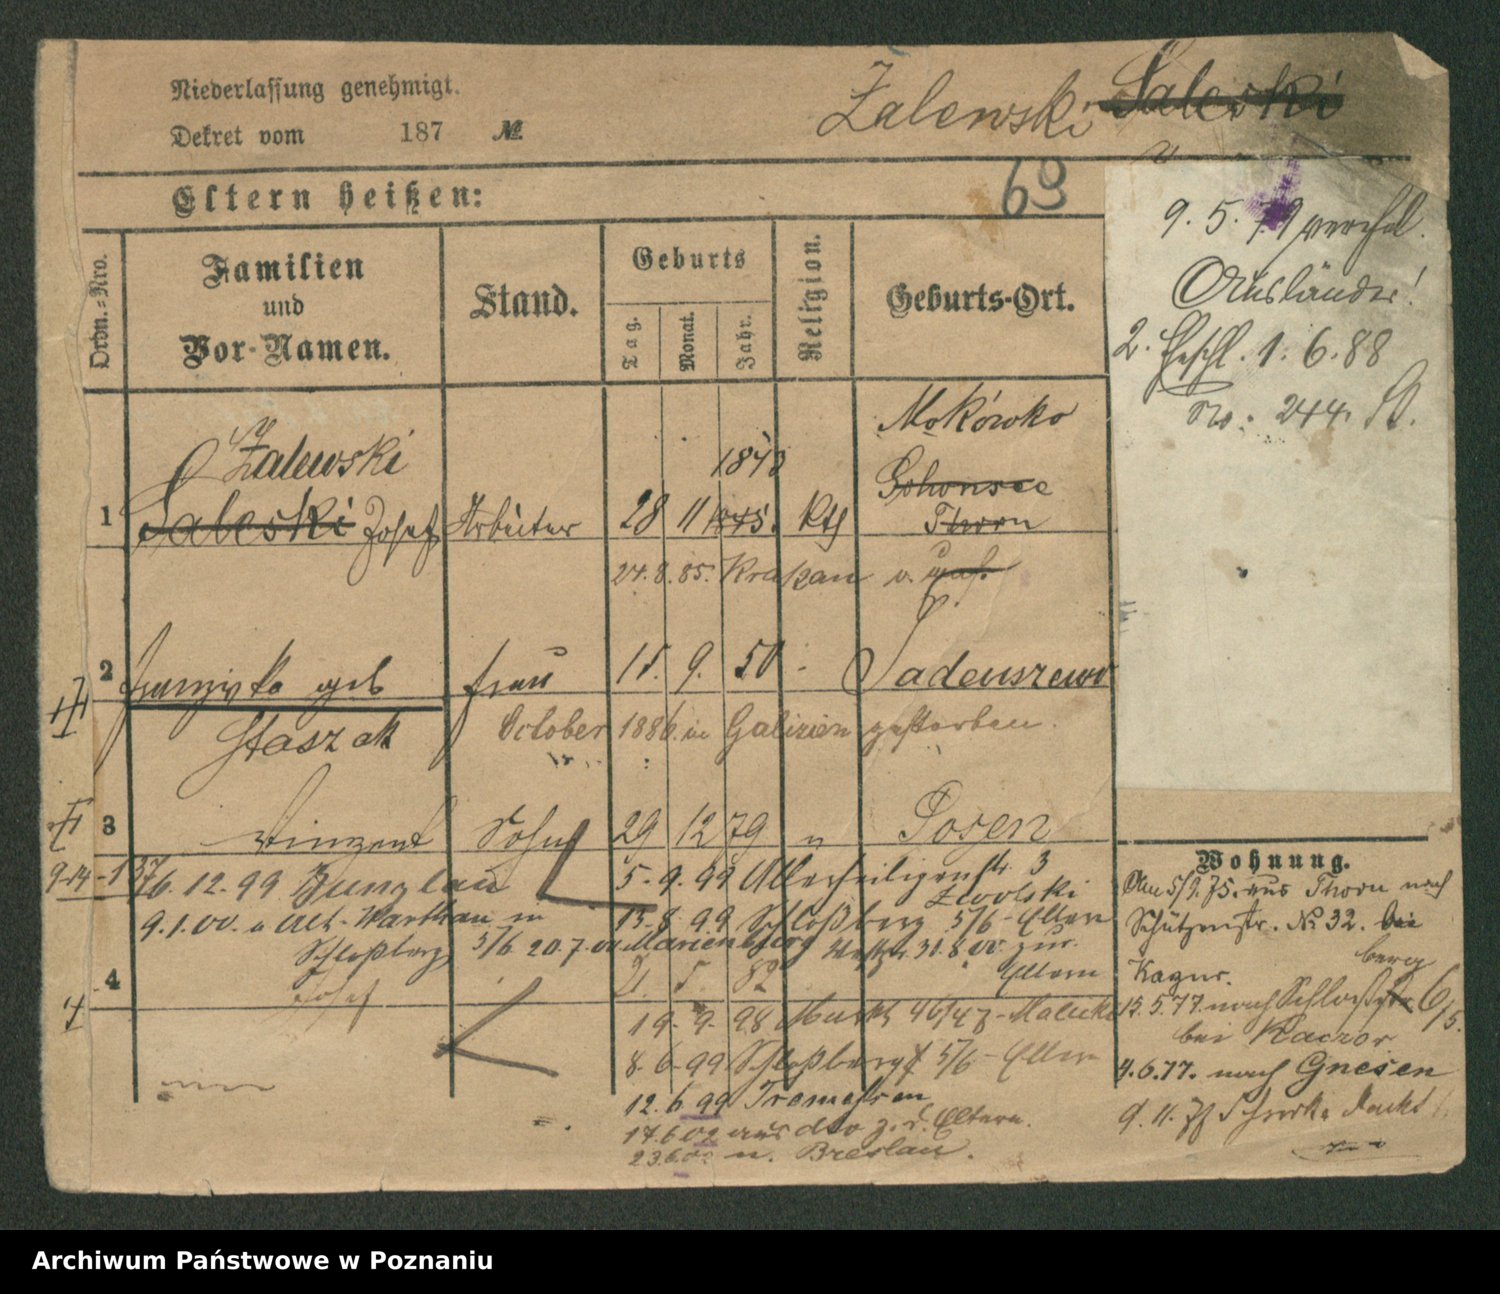 Niederlassung genehmigt.
Dekret vom 187 №
Zalewski Saleski
Eltern heißen:
69
9. 5. 79
Ausländer!
2. 1. 6. 88
No. 244.
Ordn.-Nro.
Familien
und
Vor-Namen.
Stand.
Geburts
Tag.
Monat.
Jahr.
Religion.
Geburts-Ort.
Mokówko
Zalewski 1848
1 Saleski Josef Arbeiter 28 11 1845. Kth
Thorn
24. 8. 85. Krakau v.
2 geb Frau 15. 9. 50 - Tadeuszewo
Staszak October 1886 in Galizien gestorben.
3 Vinzent Sohn 29 12 79 " Posen
16. 12. 99 Bunzlau 5. 9. 99 Allerheiligenstr. 3
9. 1. 00. Alt-Warthau 13. 8. 99 Schloßberg 5/6 - Eltern
Schloßberg 5/6 20. 7. 00 Marienberg 31. 8. 00. zur.
Eltern
4 Josef 2. 5. 82
19. 9. 98 Markt 46/47
8. 6. 99 Schloßberg 5/6 - Eltern
12. 6 99 Tremessen
17. 6 02 aus do z. d. Eltern.
23. 6. 02 n. Breslau.
Wohnung.
Am 5/9. 75. aus Thorn nach
Schützenstr. No 32. bei
Kazur.
berg
15. 5. 77. nach Schloßstr 6/5.
bei Kaczor
4. 6. 77. nach Gnesen
9. 11. Markt
Archiwum Państwowe w Poznaniu